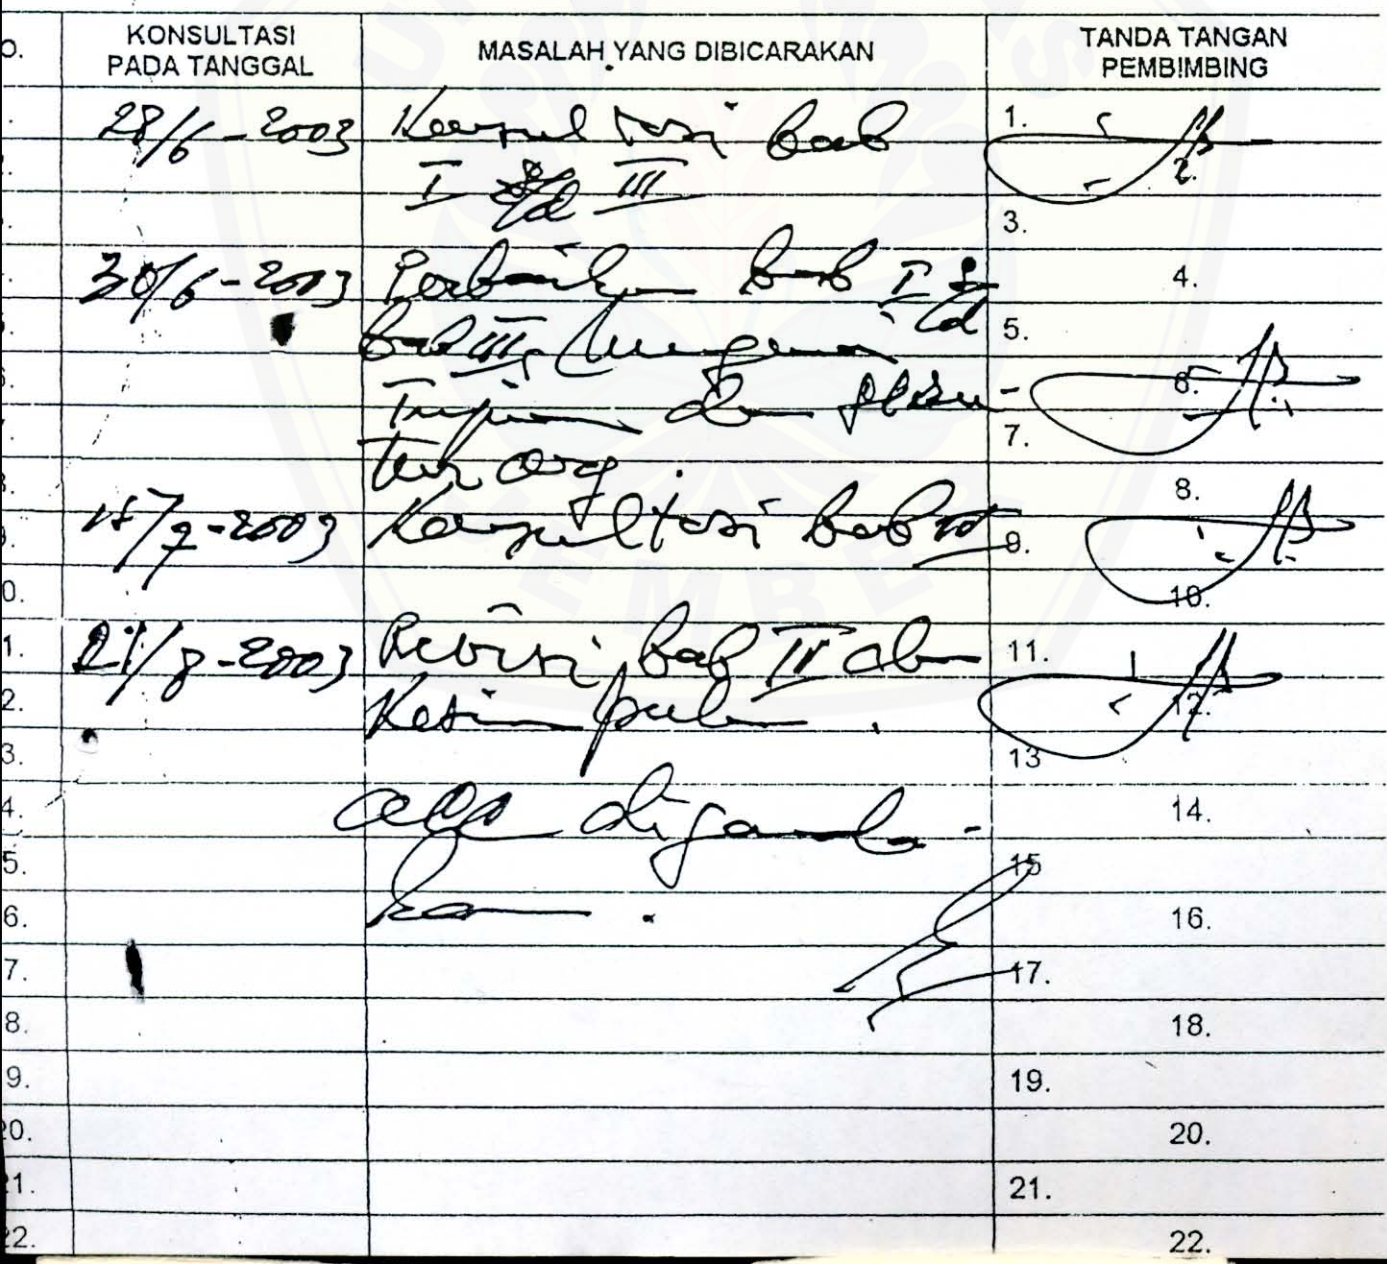 O.
KONSULTASI
PADA TANGGAL
MASALAH YANG DIBICARAKAN
TANDA TANGAN
PEMBIMBING
28/6-2003 Konsultasi bab 1.
I s/d III 2.
3.
30/6-2003 Perbaikan bab I s/d 4.
bab III, mengenai 5.
Tujuan dan 6.
7.
8.
/7-2003 Konsultasi bab 9.
0. 10.
1. 21/8-2003 Revisi bab IV dan 11.
2. Kesimpulan. 12.
3. 13
4. acc diganda- 14.
5. kan. 15
6. 16.
7. 17.
8. 18.
9. 19.
20. 20.
21. 21.
22. 22.
EMBE